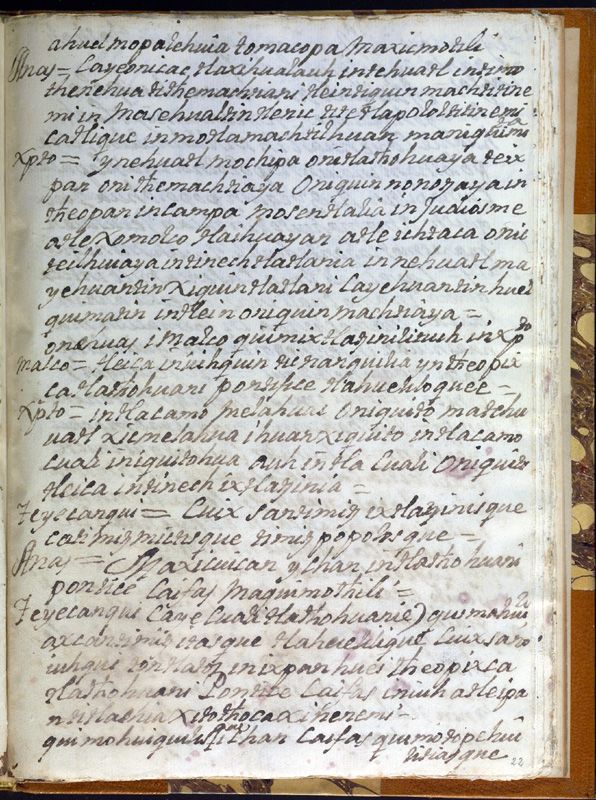 ahuel mopalehuia tomacopa Maxicmotili
Anas = Cayeonicac tlaxihualauh intehuatl intimo
thenehua tithemachtiani tleintiquin machtitine
mi in Masehualtin tleric titetlapololtitinemi
catlique inmotlamachtilhuan maniquimita
Xpto = Ynehuatl mochipa onitlathohuaya teix
pan onithemachtiaya Oniquinnonotzaya in
theopan incampa mosentlalia in Judiosme
atle Xomolco tlaihuayan atle ichtaca onic
teilhuiaya intinechtlatlania innehuatl ma
yehuantin Xiquintlatlani Cayehuantin huel
quimatin intlein oniquin machtiaya =
onehuas i Malco quimixtlatzinitiuh in Xpto
Malco = tleica iniuhquin ticnanquilia yn theopix
ca tlathohuani pontifice tlahueliloquee =
Xpto = intlacamo melahuac Oniquito matehu
uatl xicmelahua ihuan xiquito intlacamo
cuali iniquitohua Auh intla Cuali Oniquito
tleica intinech ixtlatzinia =
Teyecanqui = Cuix santimitz ixtlatzinisque
catimitzmictisque timitzpopolosque =
Anas = Maxicuican ychan intlathohuani
pontice Caifas Maquimothili =
Teyecanqui Caye Cuali tlathohuanie) quimahui
axcantimitzitasque tlahueliloque Cuix sano
iuhqui tontlatos inixpan huei theopixca
tlathohuani Pontice Caifas iniuh atleipa
ntitlachia Xitothoca xinenemi =
quimohuiquilis ichan Caifas quimotopehui
titiasque
22